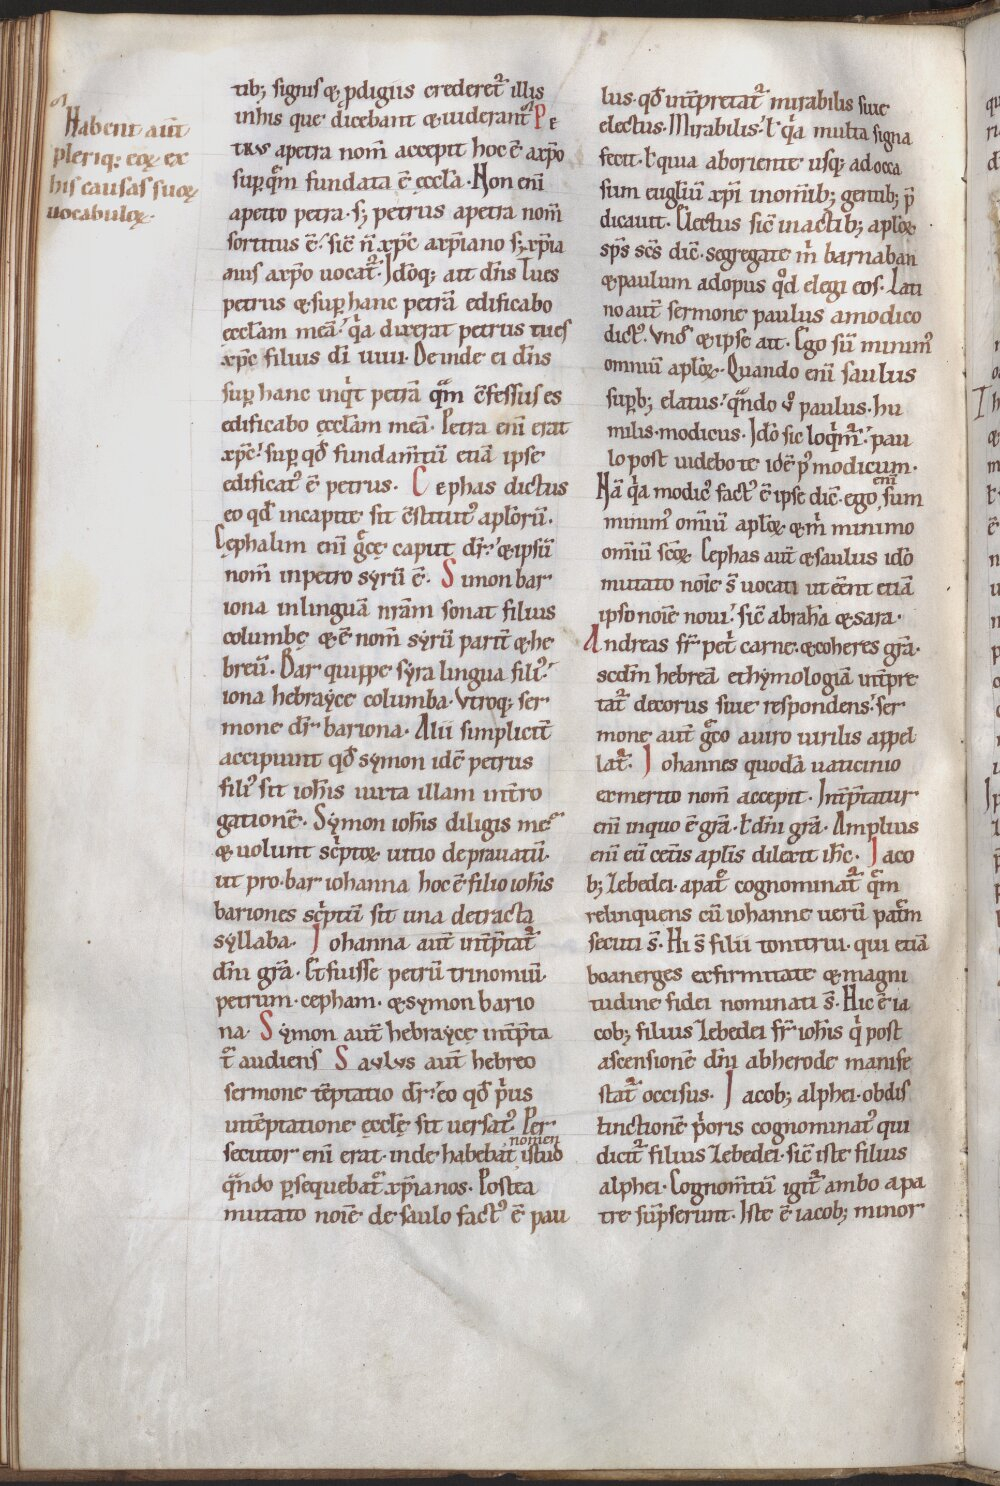 Habent aut̄
pleriq; eoꝝ ex
his causas suoꝝ
uocabuloꝝ.
tib; signis ⁊ ꝓdigiis crederet᷑ illis
inhis que dicebant ⁊ uiderant᷑ Pe
trus apetra nom̄ accepit hoc ē axp̄o
suꝑ qͣm fundata ē ęccla. Non eni̅
apetro petra. s; petrus apetra nom̄
sortitus ē. sic̄ n̄ xp̄c axp̄iano s; xp̄ia
nus axp̄o uocat᷑. Idoq; ait dn̄s Tues
petrus ⁊ suꝑ hanc petrā edificabo
ęccłam meā. qͥa dixerat petrus tues
xp̄c filius di̅ uiui. Deinde ei dn̄s
suꝑ hanc inqͥt petrā qͣm c̄fessus es
edificabo ęccłam meā. Petra eni̅ erat
xp̄c. suꝑ qđ fundam̄tū etiā ipse
edificatꝰ ē petrus. Cephas dictus
eo qđ incapite sit c̄stitutꝰ apłorū.
Cephalim eni̅ gͣcę caput dr̄. ⁊ ipsū
nom̄ inpetro syrū ē. Simon bar
iona inlinguā nr̄am sonat filius
columbę ⁊ ē nom̄ syrū parit̄ ⁊ he
breū. Bar quippe syra lingua filiꝰ.
iona hebrayce columba. Vtroq; ser
mone dr̄ bariona. Alii simplicit̄
accipiunt qđ symon idē petrus
filiꝰ sit ioħis iuxta illam int̄ro
gationē. Symon ioħis diligis me
⁊ uolunt scͥptoꝝ uitio deprauatū.
ut pro. bar iohanna hoc ē filio ioħis
bariones scͥptū sit una detracta
syllaba. Iohanna aut̄ int̄p̄tat᷑
dn̄i grā. Et fuisse petrū trinomiū.
petrum. cepham. ⁊ symon bario
na. Symon aut̄ hebraycę int̄p̄ta
t᷑ audiens Saulus aut̄ hebreo
sermone tēptatio dr̄. eo qđ pͥus
intēptatione ęcclę sit uersatꝰ. Per
secutor eni̅ erat. inde habebat nomen istud
qͣndo ꝑsequebat᷑ xp̄ianos. Postea
mutato noīe de saulo factꝰ ē pau
lus. qđ int̄pretat᷑ mirabilis siue
electus. Mirabilis. ł qͥa multa signa
fecit. ł quia aboriente usq; ad occa
sum euḡliū xp̄i inom̄ib; gentib; p̄
dicauit. Electus sic̄ inactib; apłoꝝ
sp̄s sc̄s dic̄. segregate m̄ barnaban
⁊ paulum adopus qͦd elegi eos. Lati
no aut̄ sermone paulus amodico
dictꝰ. Vnđ ⁊ ipse ait. Ego sū minimꝰ
omniū apłoꝝ. Quando eni̅ saulus
suꝑb; elatus. qͣndo uͦ paulus. hu
milis. modicus. Ido sic loqͥm᷑. pau
lo post uidebo te idē pꝰ modicum.
Nā qͥa modicꝰ factꝰ ē ipse dic̄. ego eni̅ sum
minimꝰ omīū apłoꝝ ⁊ m̄ minimo
omīū sc̄oꝝ. Cephas aut̄ ⁊ saulus ido
mutato noīe s̄ uocati ut eēnt etiā
ipso noīe noui. sic̄ abrahā ⁊ sara.
Andreas fr̄ pet̄ carne. ⁊ coheres grā.
scđm hebreā ethymologiā int̄pre
tat᷑ decorus siue respondens. ser
mone aut̄ gͣco auiro uirilis appel
lat᷑. Iohannes quodā uaticinio
exmerito nom̄ accepit. Int̄p̄tatur
eni̅ inquo ē grā. ł dn̄i grā. Amplius
eni̅ eū cet̄is apłis dilexit ihc̄. Iaco
b; Zebedei. apat̄ cognominat᷑ qͣm
relinquens cū iohanne uerū pat̄m
secuti s̄. Hi s̄ filii tonitrui. qui etiā
boanerges exfirmitate ⁊ magni
tudine fidei nominati s̄. Hic ē ia
cob; filius Zebedei fr̄ ioħis qͥ post
ascensionē dn̄i abherode manife
stat᷑ occisus. Iacob; alphei. obdis
tinctionē pͥoris cognominatꝰ qui
dicit᷑ filius Zebedei. sic̄ iste filius
alphei. Cognom̄tū igit᷑ ambo apa
tre sūpserunt. Iste ē iacob; minor